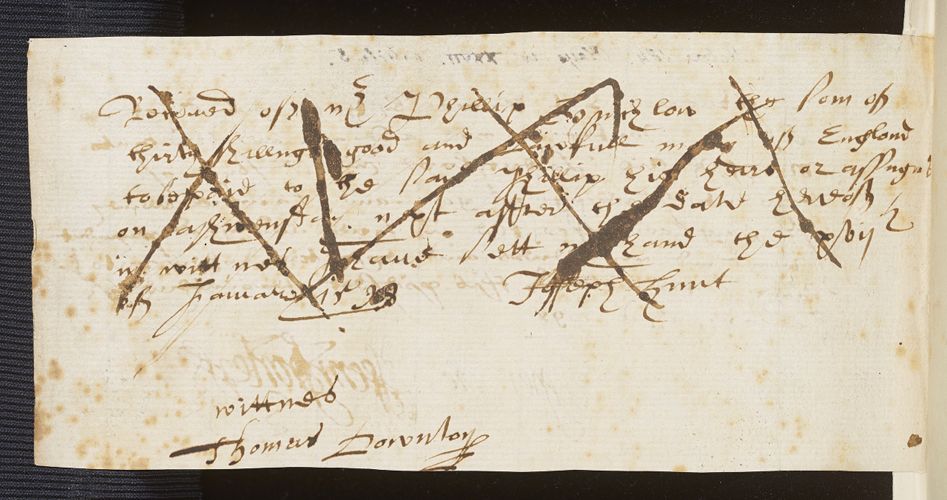 Receued of mr Phillip Hinchlow the som of
thirty shillings good and lawfull mony of England
to be payd to the said Phillip his heirs or assings
on ashwensday next affter the date hereof
in wittnes I haue sett my hand the xvij th
of Januarei 1598
Joseph hunt
wittnes
Thomas Downton